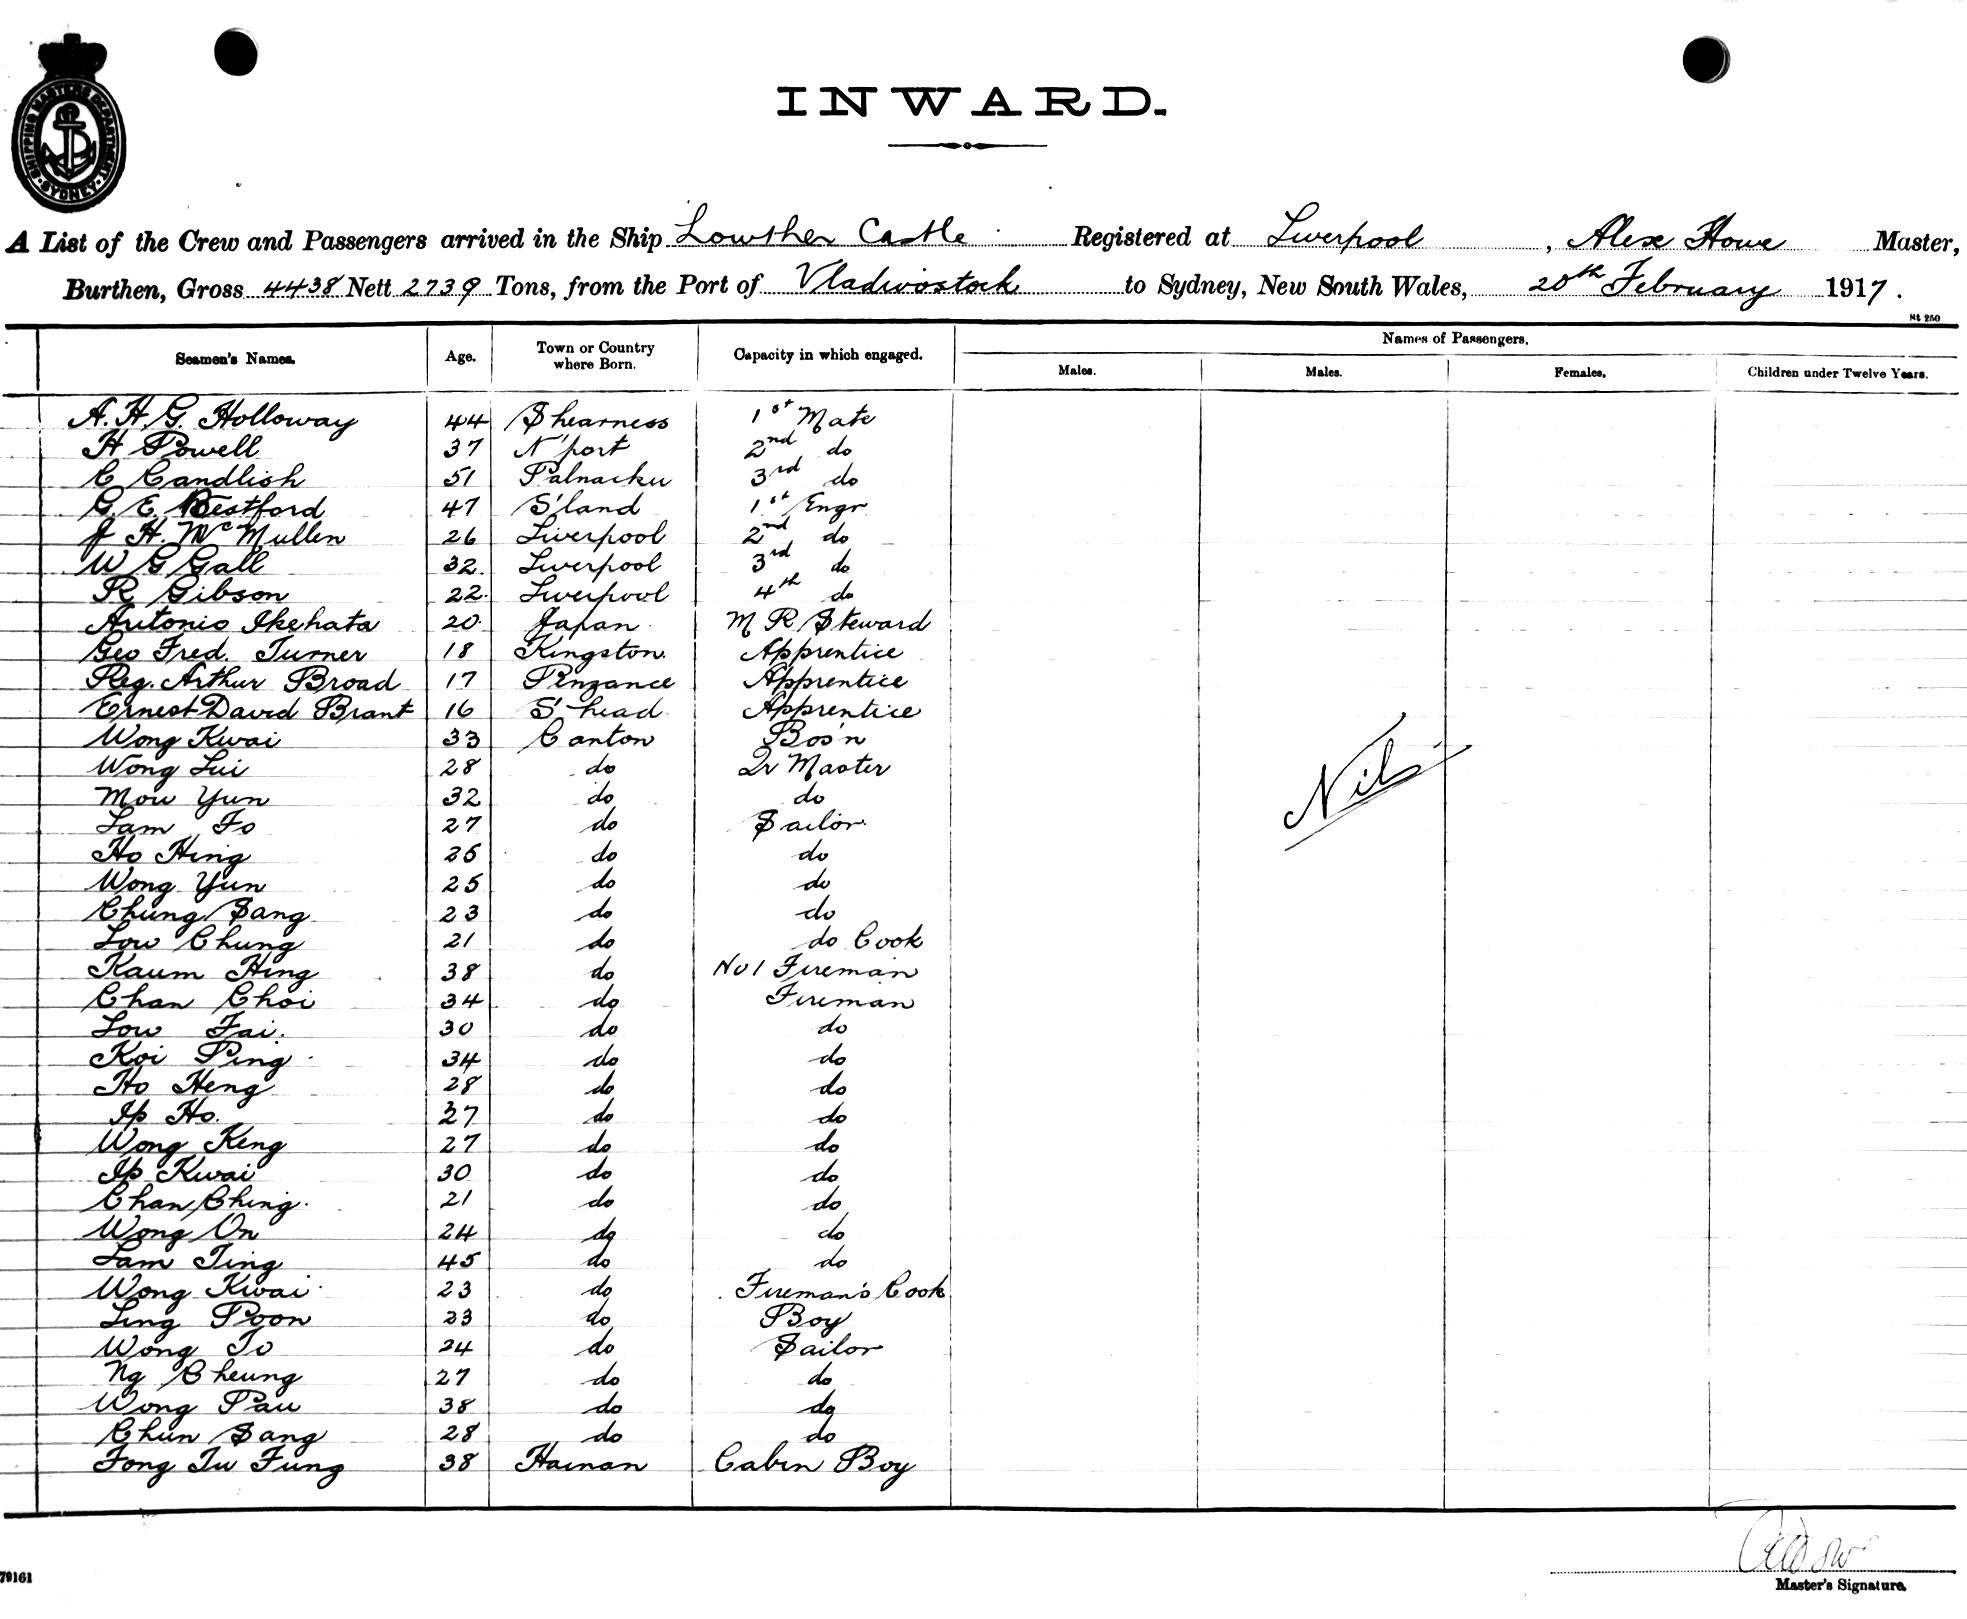 SHIPPING MASTERS DEPARTMENT
SYDNEY
INWARD.
A List of the Crew and Passengers arrived in the Ship Lowther Castle Registered at Liverpool, Alex Howe Master,
Burthen, Gross 4438 Nett 2739 Tons, from the Port of Vladivostock to Sydney, New South Wales, 20th February 1917.
St 250
Seamen's Names. Age. Town or Country where Born. Capacity in which engaged. Names of Passengers.
Males. Males. Females. Children under Twelve Years.
A. H. G. Holloway 44 Shearness 1st Mate
H Powell 37 N'port 2nd do
C Candlish 51 Palnacku 3rd do
G. E. Bestford 47 S'land 1st Engr
J H. McMullen 26 Liverpool 2nd do
W G Gall 32 Liverpool 3rd do
R Gibson 22 Liverpool 4th do
Antonio Ikehata 20 Japan M R Steward
Geo Fred. Turner 18 Kingston Apprentice
Reg. Arthur Broad 17 Penzance Apprentice
Ernest David Brant 16 S'head Apprentice
Wong Kwai 33 Canton Bos'n
Wong Lui 28 do Qr Master
Mow Yun 32 do do
Lam Fo 27 do Sailor
Ho Hing 25 do do
Wong Yun 25 do do
Chung Sang 23 do do
Low Chung 21 do do Cook
Kaum Hing 38 do No 1 Fireman
Chan Choi 34 do Fireman
Low Fai. 30 do do
Koi Ping 34 do do
Ho Heng 28 do do
Ip Ho. 37 do do
Wong Keng 27 do do
Ip Kwai 30 do do
Chan Ching. 21 do do
Wong On 24 do do
Lam Ting 45 do do
Wong Kwai 23 do Fireman's Cook
Ling Poon 23 do Boy
Wong To 24 do Sailor
Ng Cheung 27 do do
Wong Pau 38 do do
Chun Sang 28 do do
Fong Tu Fung 38 Hainan Cabin Boy
Nil
79161
Master's Signature.